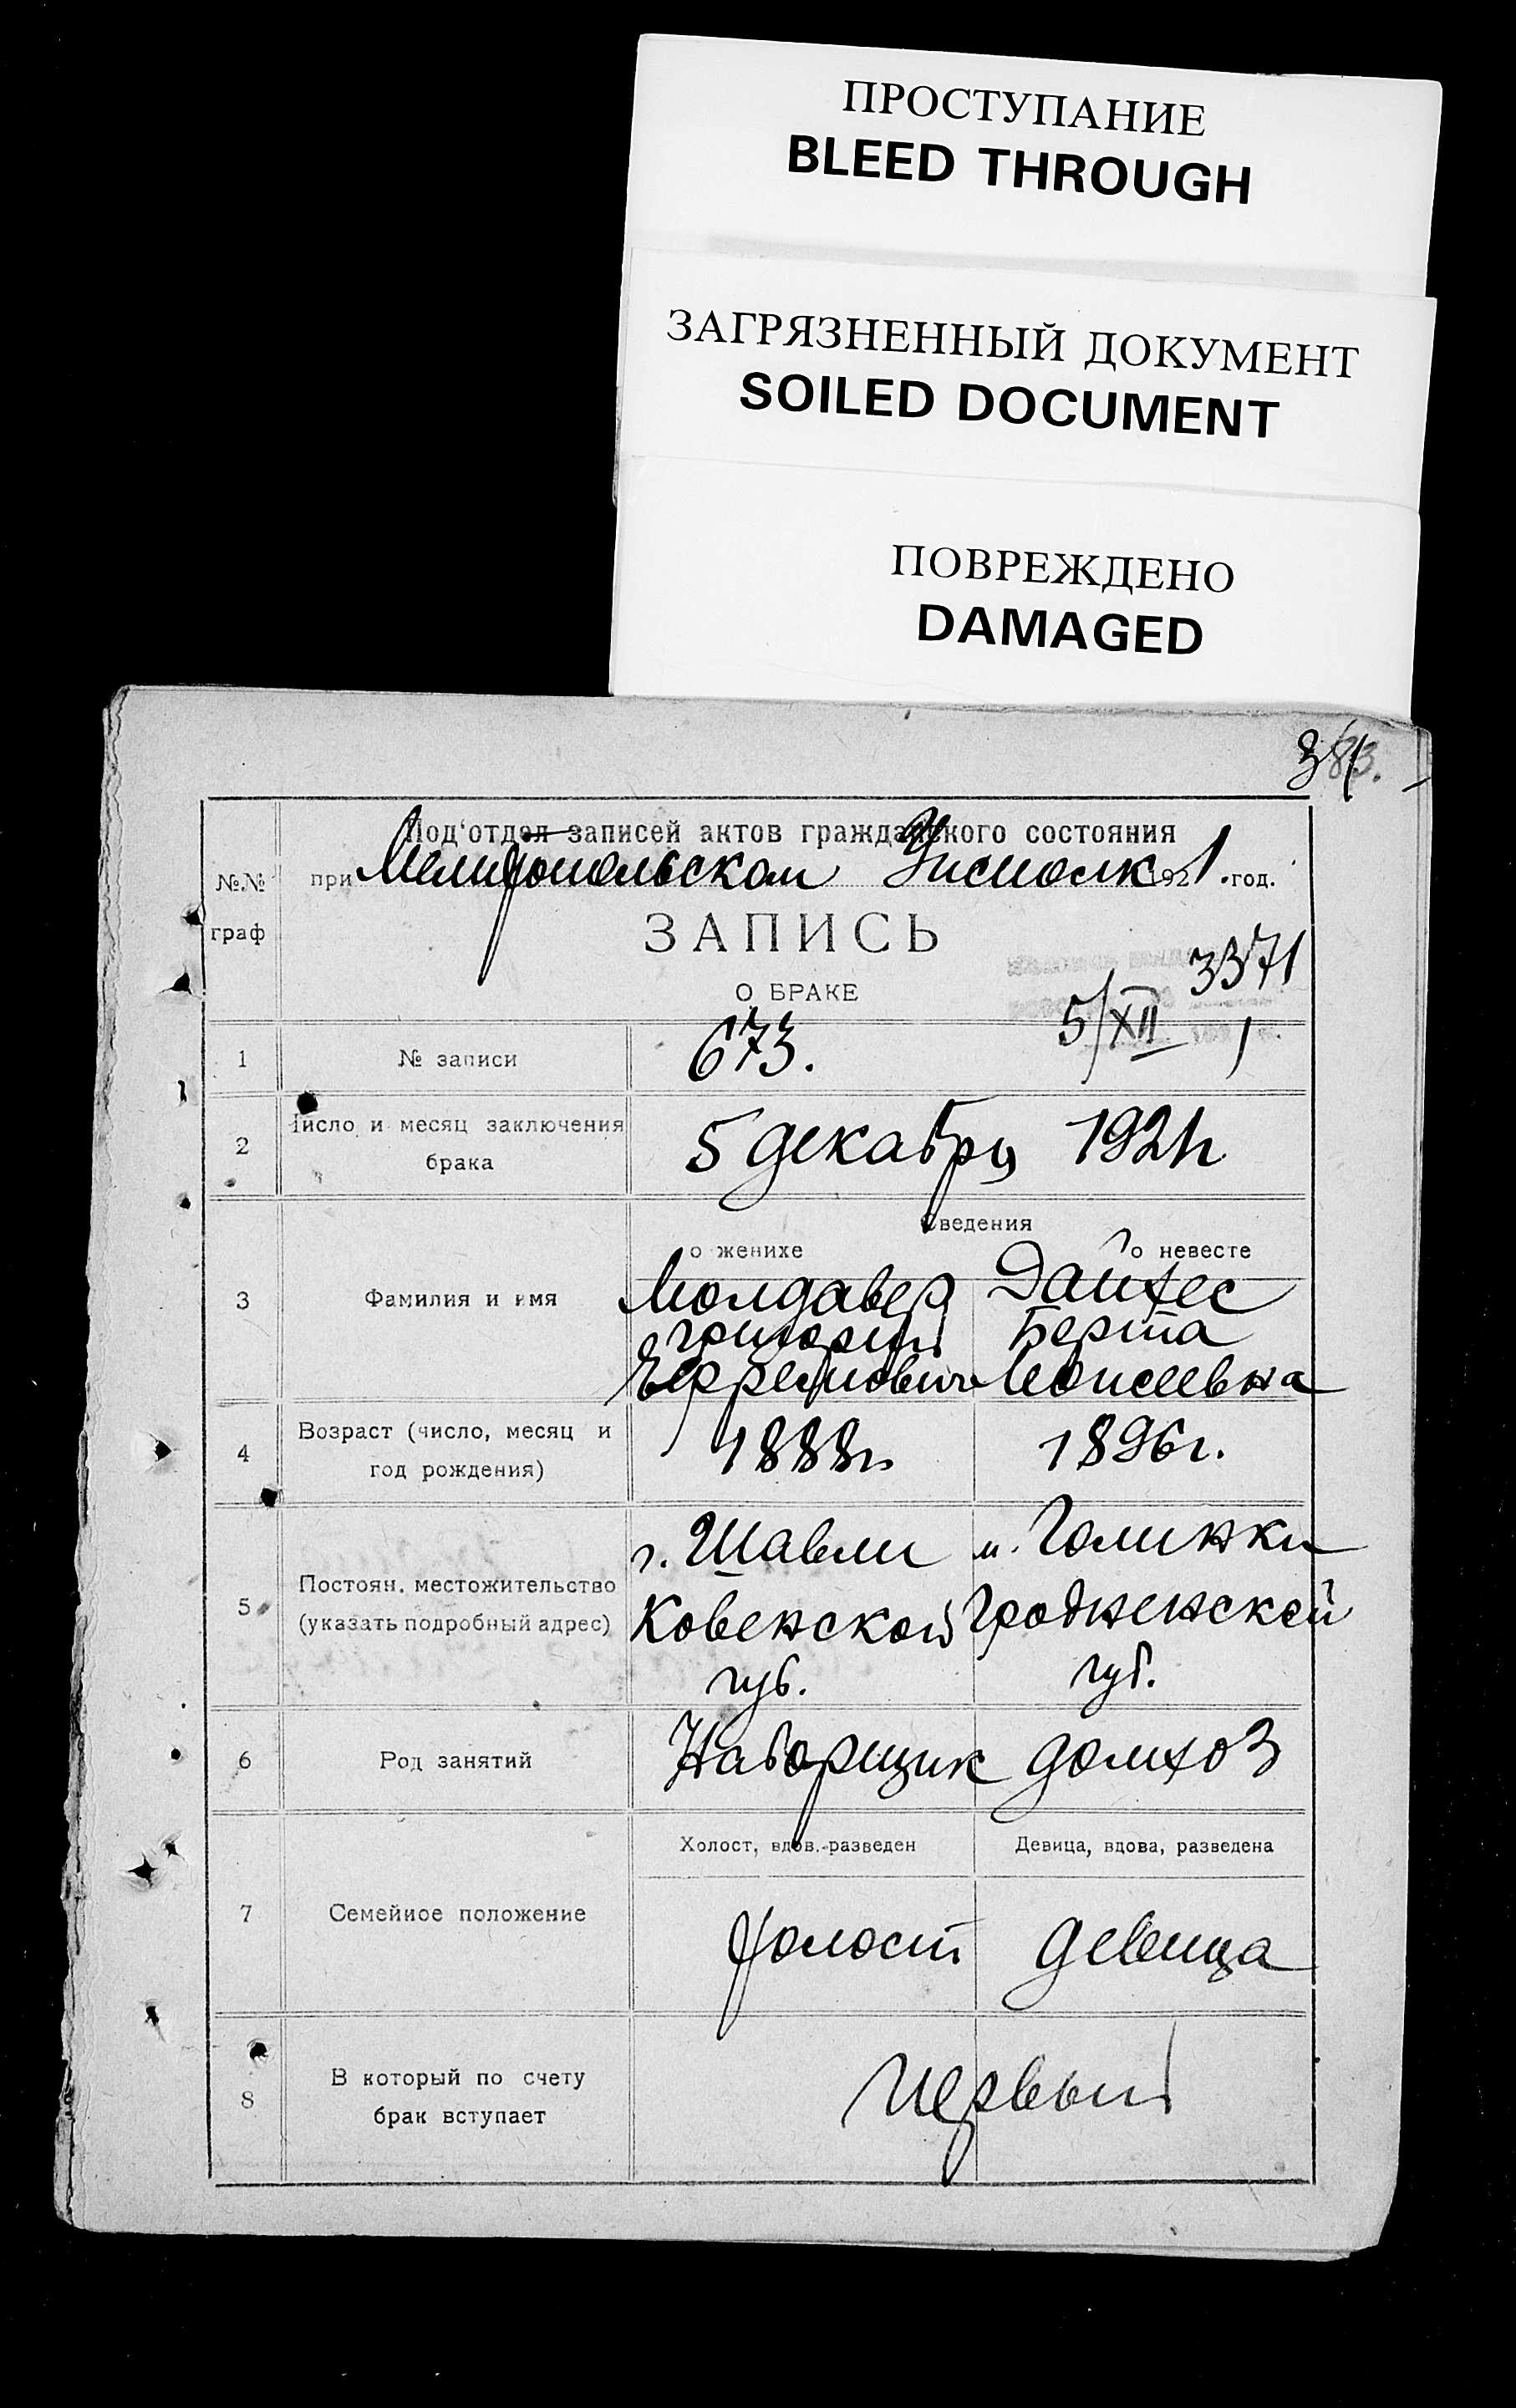 ПРОСТУПАНИЕ
BLEED THROUGH
ЗАГРЯЗНЕННЫЙ ДОКУМЕНТ
SOILED DOCUMENT
ПОВРЕЖДЕНО
DAMAGED
Под'отдел записей актов гражданского состояния
№№ граф
при Мелитопольском Уисполк 1921 год.
ЗАПИСЬ
3371
О БРАКЕ
5/XII 1
1 № записи 673.
2 Число и месяц заключения брака 5 декабря 1921г
Сведения
о женихе о невесте
3 Фамилия и имя
Молдавер Дайхес
Григорий Берта
Ефремович Моисеевна
4 Возраст (число, месяц и год рождения) 1888г. 1896г.
5 Постоян. местожительство (указать подробный адрес)
г. Шавли м. Голинки
Ковенской Гродненской
губ. губ.
6 Род занятий Наборщик домхоз
Холост, вдов. разведен Девица, вдова, разведена
7 Семейное положение холост девица
8 В который по счету брак вступает первый